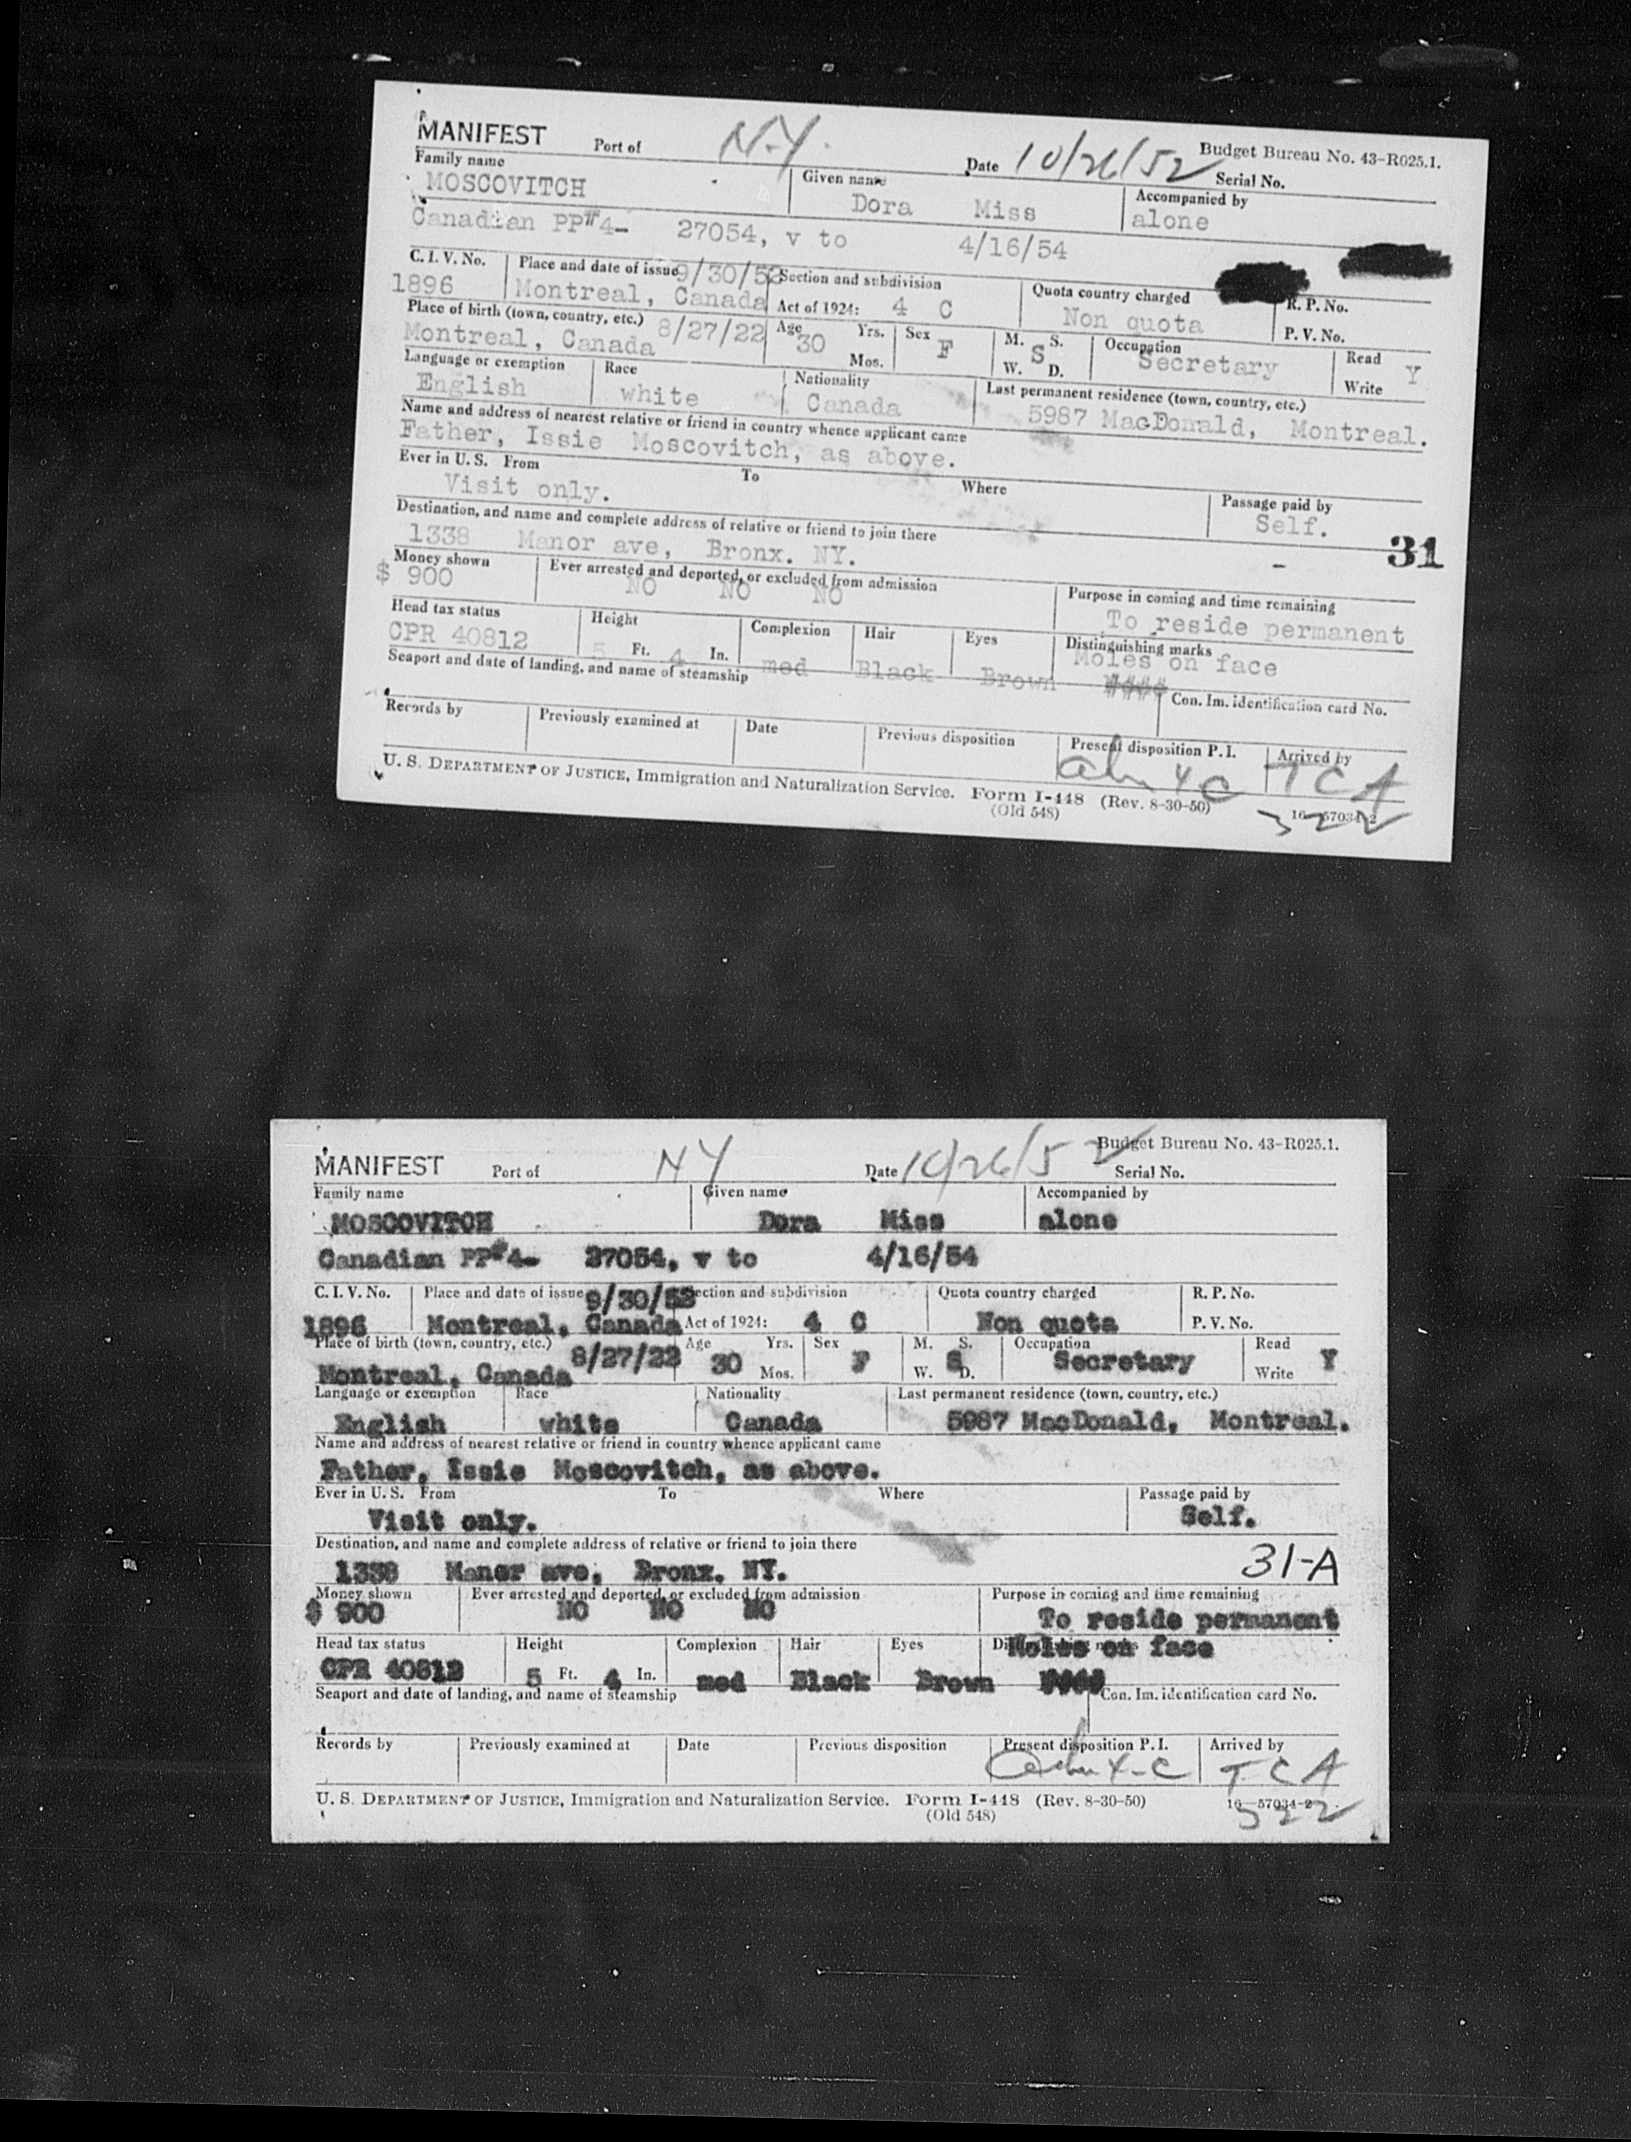 MANIFEST Port of N.Y. Date 10/26/52 Budget Bureau No. 43-R025.1.
Serial No.
Family name Given name Accompanied by
MOSCOVITCH Dora Miss alone
Canadian PP#4- 27054, v to 4/16/54
C. I. V. No. Place and date of issue 9/30/52 Section and subdivision Quota country charged R. P. No.
1896 Montreal, Canada Act of 1924: 4 C Non quota P. V. No.
Place of birth (town, country, etc.) 8/27/22 Age 30 Yrs. Mos. Sex F M. S. W. D. S Occupation Read Write Y
Montreal, Canada Secretary
Language or exemption Race Nationality Last permanent residence (town, country, etc.)
English white Canada 5987 MacDonald, Montreal.
Name and address of nearest relative or friend in country whence applicant came
Father, Issie Moscovitch, as above.
Ever in U. S. From To Where Passage paid by
Visit only. Self.
Destination, and name and complete address of relative or friend to join there
1338 Manor ave, Bronx. NY. - 31
Money shown Ever arrested and deported, or excluded from admission Purpose in coming and time remaining
$ 900 NO NO NO To reside permanent
Head tax status Height Complexion Hair Eyes Distinguishing marks
CPR 40812 5 Ft. 4 In. med Black Brown Moles on face
Seaport and date of landing, and name of steamship Con. Im. identification card No.
Records by Previously examined at Date Previous disposition Present disposition P. I. Arrived by
4 C TCA
U. S. DEPARTMENT OF JUSTICE, Immigration and Naturalization Service. Form I-448 (Rev. 8-30-50) 16-57034-2
(Old 548) 322
MANIFEST Port of NY Date 10/26/52 Budget Bureau No. 43-R025.1.
Serial No.
Family name Given name Accompanied by
MOSCOVITCH Dora Miss alone
Canadian PP#4- 27054, v to 4/16/54
C. I. V. No. Place and date of issue 9/30/52 Section and subdivision Quota country charged R. P. No.
1896 Montreal, Canada Act of 1924: 4 C Non quota P. V. No.
Place of birth (town, country, etc.) 8/27/22 Age 30 Yrs. Mos. Sex F M. S. W. D. S Occupation Read Write Y
Montreal, Canada Secretary
Language or exemption Race Nationality Last permanent residence (town, country, etc.)
English white Canada 5987 MacDonald, Montreal.
Name and address of nearest relative or friend in country whence applicant came
Father, Issie Moscovitch, as above.
Ever in U. S. From To Where Passage paid by
Visit only. Self.
Destination, and name and complete address of relative or friend to join there
1338 Manor ave, Bronx. NY. 31-A
Money shown Ever arrested and deported, or excluded from admission Purpose in coming and time remaining
$ 900 NO NO NO To reside permanent
Head tax status Height Complexion Hair Eyes Moles on face
CPR 40812 5 Ft. 4 In. med Black Brown
Seaport and date of landing, and name of steamship Con. Im. identification card No.
Records by Previously examined at Date Previous disposition Present disposition P. I. Arrived by
4-C TCA
U. S. DEPARTMENT OF JUSTICE, Immigration and Naturalization Service. Form I-448 (Rev. 8-30-50) 16-57034-2
(Old 548) 322